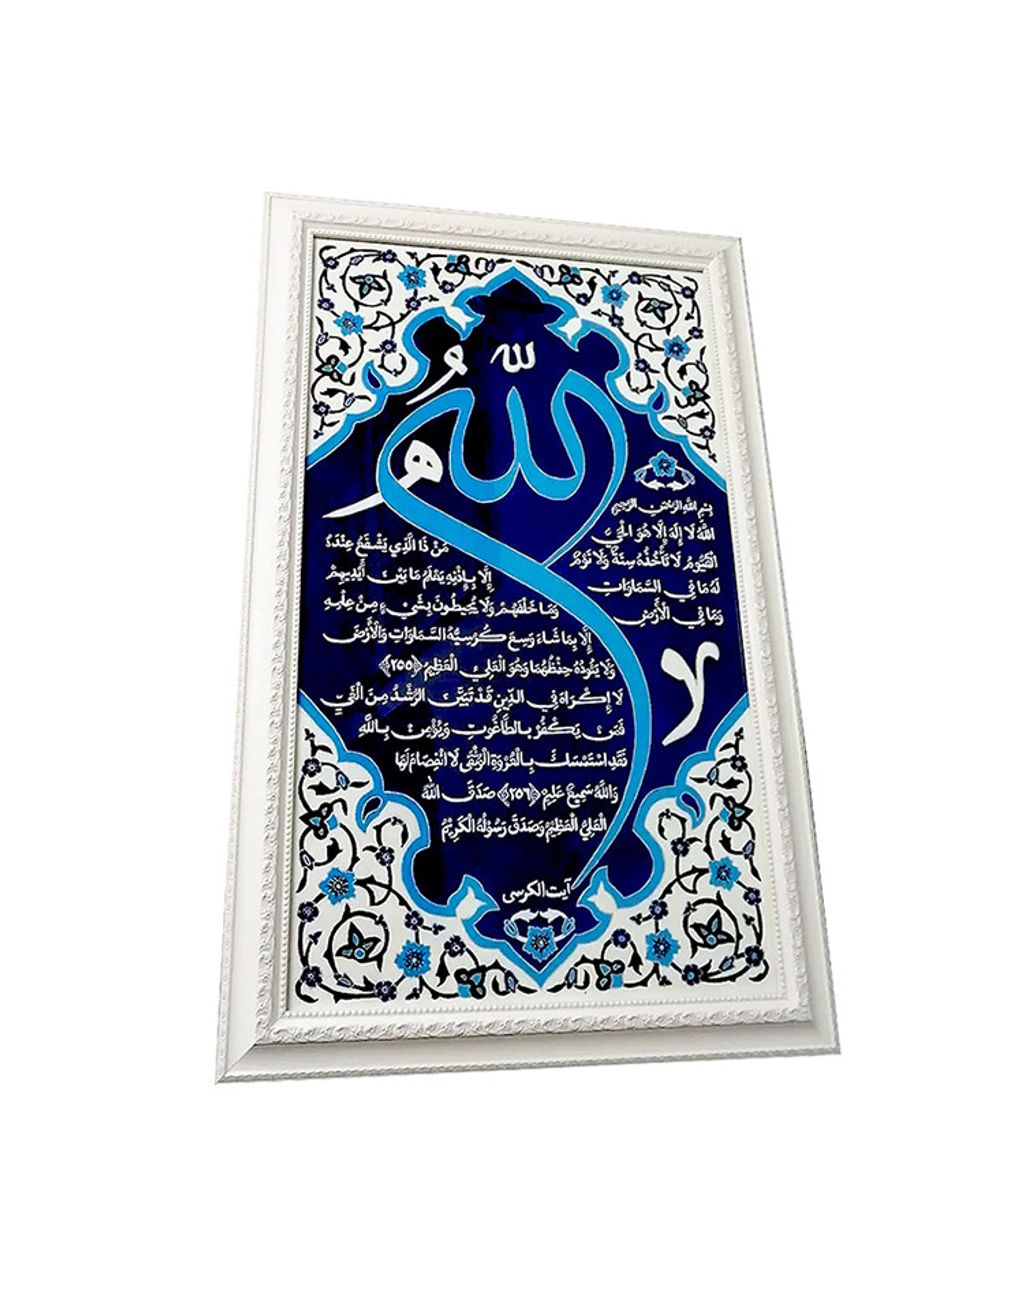 لله
الله
و
هو
لا
بِسْمِ اللَّهِ الرَّحْمَنِ الرَّحِيمِ
اللَّهُ لَا إِلَهَ إِلَّا هُوَ الْحَيُّ
الْقَيُّومُ لَا تَأْخُذُهُ سِنَةٌ وَلَا نَوْمٌ
لَهُ مَا فِي السَّمَاوَاتِ
وَمَا فِي الْأَرْضِ
مَنْ ذَا الَّذِي يَشْفَعُ عِنْدَهُ
إِلَّا بِإِذْنِهِ يَعْلَمُ مَا بَيْنَ أَيْدِيهِمْ
وَمَا خَلْفَهُمْ وَلَا يُحِيطُونَ بِشَيْءٍ مِنْ عِلْمِهِ
إِلَّا بِمَا شَاءَ وَسِعَ كُرْسِيُّهُ السَّمَاوَاتِ وَالْأَرْضَ
وَلَا يَئُودُهُ حِفْظُهُمَا وَهُوَ الْعَلِيُّ الْعَظِيمُ ﴿٢٥٥﴾
لَا إِكْرَاهَ فِي الدِّينِ قَدْ تَبَيَّنَ الرُّشْدُ مِنَ الْغَيِّ
فَمَنْ يَكْفُرْ بِالطَّاغُوتِ وَيُؤْمِنْ بِاللَّهِ
فَقَدِ اسْتَمْسَكَ بِالْعُرْوَةِ الْوُثْقَى لَا انْفِصَامَ لَهَا
وَاللَّهُ سَمِيعٌ عَلِيمٌ ﴿٢٥٦﴾ صَدَقَ اللَّهُ
الْعَلِيُّ الْعَظِيمُ وَصَدَقَ رَسُولُهُ الْكَرِيمُ
آیت الکرسی